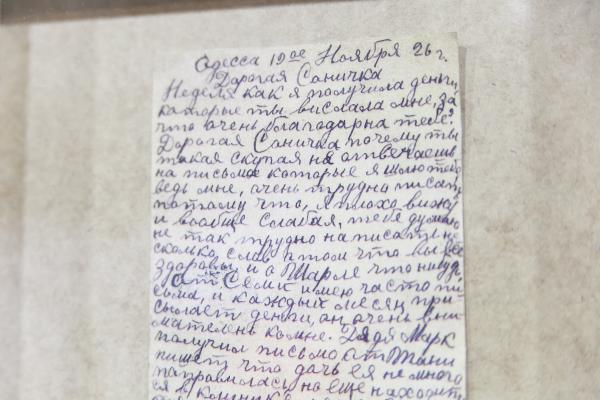 Одесса 19ое Ноября 26 г.
Дорогая Саничка
Неделя как я получила деньги,
каторые ты вислала мне, за
что очень благодарна тебе.
Дорогая Саничка почему ты
такая скупая на атвечаешь
на письма которые я шлю тебе
ведь мне, очень трудно писать
патаму что, я плоха вижу
и вообще слабая, тебе думаю
не так трудно написать не-
сколько слов а том что вы все
здоровы, и о Шарле что нибудь
ат Семи имею часто пи-
сьма, и каждых месяц при-
сылает деньги, он очень вни-
мателен комне. Дядя Марк
получил письмо ат Тани
пишет что дочь ея не много
паправилась но еще находит-
ся в